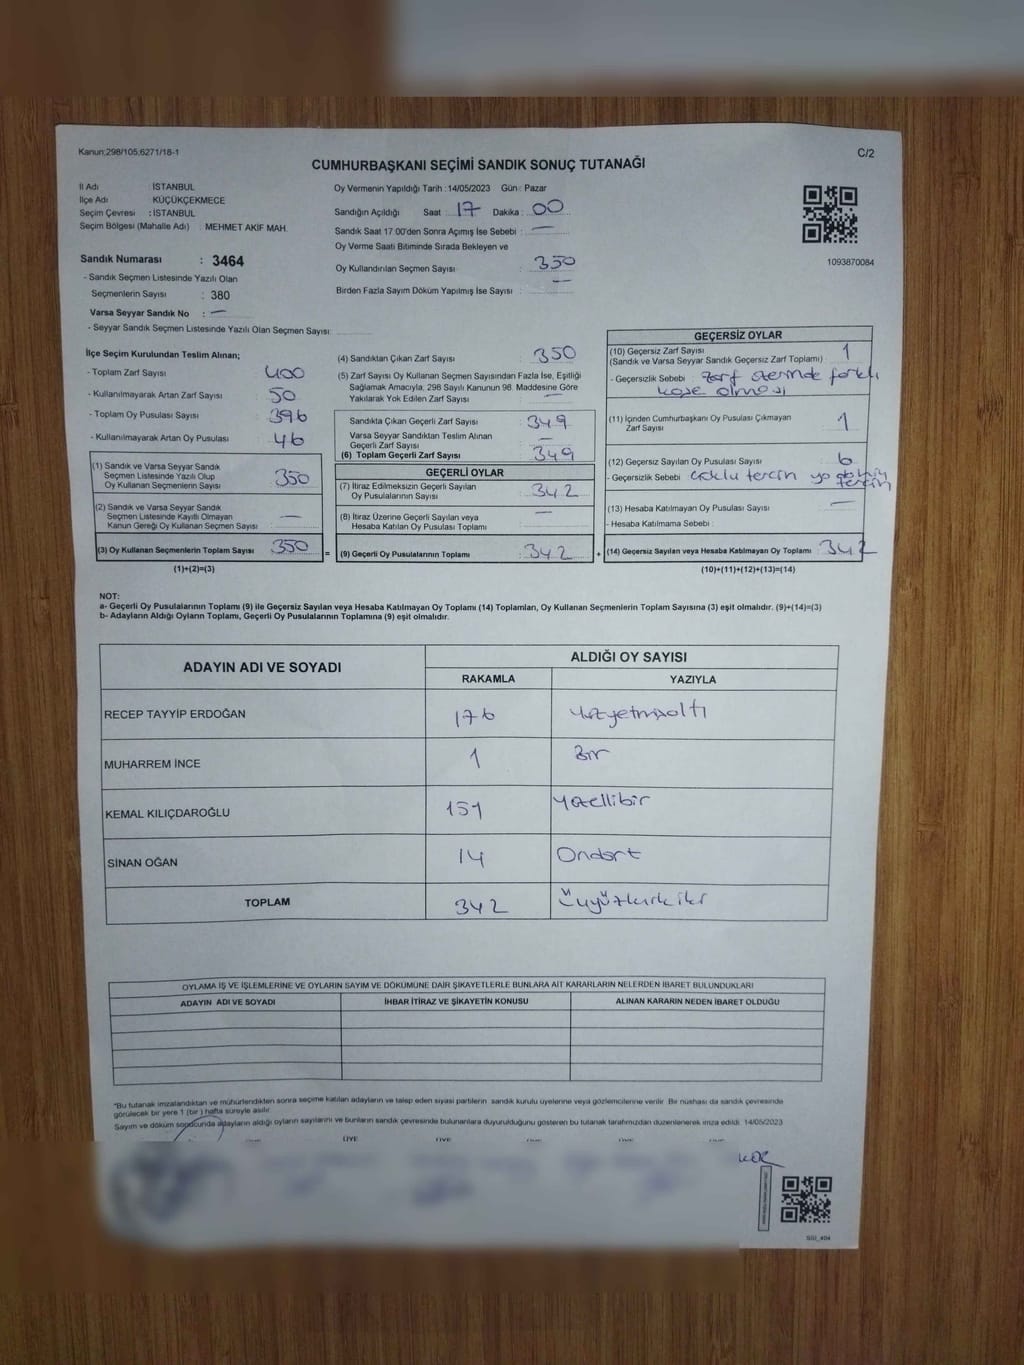 Kanun;298/105;6271/18-1
C/2
CUMHURBAŞKANI SEÇİMİ SANDIK SONUÇ TUTANAĞI
İl Adı İSTANBUL
İlçe Adı KÜÇÜKÇEKMECE
Seçim Çevresi : İSTANBUL
Seçim Bölgesi (Mahalle Adı) : MEHMET AKİF MAH.
Sandık Numarası : 3464
- Sandık Seçmen Listesinde Yazılı Olan
Seçmenlerin Sayısı : 380
Varsa Seyyar Sandık No : —
- Seyyar Sandık Seçmen Listesinde Yazılı Olan Seçmen Sayısı:
Oy Vermenin Yapıldığı Tarih : 14/05/2023 Gün : Pazar
Sandığın Açıldığı Saat : 17 Dakika : 00
Sandık Saat 17.00'den Sonra Açımış İse Sebebi : —
Oy Verme Saati Bitiminde Sırada Bekleyen ve
Oy Kullandırılan Seçmen Sayısı : 350
Birden Fazla Sayım Döküm Yapılmış İse Sayısı : —
1093870084
İlçe Seçim Kurulundan Teslim Alınan;
- Toplam Zarf Sayısı : 400
- Kullanılmayarak Artan Zarf Sayısı : 50
- Toplam Oy Pusulası Sayısı : 396
- Kullanılmayarak Artan Oy Pusulası : 46
(1) Sandık ve Varsa Seyyar Sandık
Seçmen Listesinde Yazılı Olup
Oy Kullanan Seçmenlerin Sayısı : 350
(2) Sandık ve Varsa Seyyar Sandık
Seçmen Listesinde Kayıtlı Olmayan
Kanun Gereği Oy Kullanan Seçmen Sayısı : —
(3) Oy Kullanan Seçmenlerin Toplam Sayısı : 350
(1)+(2)=(3)
(4) Sandıktan Çıkan Zarf Sayısı : 350
(5) Zarf Sayısı Oy Kullanan Seçmen Sayısından Fazla İse, Eşitliği
Sağlamak Amacıyla, 298 Sayılı Kanunun 98. Maddesine Göre
Yakılarak Yok Edilen Zarf Sayısı : —
Sandıkta Çıkan Geçerli Zarf Sayısı : 349
Varsa Seyyar Sandıktan Teslim Alınan
Geçerli Zarf Sayısı : —
(6) Toplam Geçerli Zarf Sayısı : 349
GEÇERLİ OYLAR
(7) İtiraz Edilmeksizin Geçerli Sayılan
Oy Pusulalarının Sayısı : 342
(8) İtiraz Üzerine Geçerli Sayılan veya
Hesaba Katılan Oy Pusulası Toplamı : —
= (9) Geçerli Oy Pusulalarının Toplamı : 342 +
GEÇERSİZ OYLAR
(10) Geçersiz Zarf Sayısı
(Sandık ve Varsa Seyyar Sandık Geçersiz Zarf Toplamı) : 1
- Geçersizlik Sebebi : zarf üzerinde farklı
kaşe olması
(11) İçinden Cumhurbaşkanı Oy Pusulası Çıkmayan
Zarf Sayısı : 1
(12) Geçersiz Sayılan Oy Pusulası Sayısı : 6
- Geçersizlik Sebebi : çoklu tercih
tercih
(13) Hesaba Katılmayan Oy Pusulası Sayısı : —
- Hesaba Katılmama Sebebi :
(14) Geçersiz Sayılan veya Hesaba Katılmayan Oy Toplamı : 342
(10)+(11)+(12)+(13)=(14)
NOT:
a- Geçerli Oy Pusulalarının Toplamı (9) ile Geçersiz Sayılan veya Hesaba Katılmayan Oy Toplamı (14) Toplamları, Oy Kullanan Seçmenlerin Toplam Sayısına (3) eşit olmalıdır. (9)+(14)=(3)
b- Adayların Aldığı Oyların Toplamı, Geçerli Oy Pusulalarının Toplamına (9) eşit olmalıdır.
ADAYIN ADI VE SOYADI ALDIĞI OY SAYISI
RAKAMLA YAZIYLA
RECEP TAYYİP ERDOĞAN 176 Yüzyetmişaltı
MUHARREM İNCE 1 Bir
KEMAL KILIÇDAROĞLU 151 Yüzellibir
SİNAN OĞAN 14 Ondört
TOPLAM 342 Üçyüzkırkiki
OYLAMA İŞ VE İŞLEMLERİNE VE OYLARIN SAYIM VE DÖKÜMÜNE DAİR ŞİKAYETLERLE BUNLARA AİT KARARLARIN NELERDEN İBARET BULUNDUKLARI
ADAYIN ADI VE SOYADI İHBAR İTİRAZ VE ŞİKAYETİN KONUSU ALINAN KARARIN NEDEN İBARET OLDUĞU
*Bu tutanak imzalandıktan ve mühürlendikten sonra seçime katılan adayların ve talep eden siyasi partilerin sandık kurulu üyelerine veya gözlemcilerine verilir. Bir nüshası da sandık çevresinde
görülecek bir yere 1 (bir ) hafta süreyle asılır.
Sayım ve döküm sonucunda adayların aldığı oyların sayılarını ve bunların sandık çevresinde bulunanlara duyurulduğunu gösteren bu tutanak tarafımızdan düzenlenerek imza edildi. 14/05/2023
ÜYE ÜYE ÜYE ÜYE ÜYE ÜYE
SSI_404